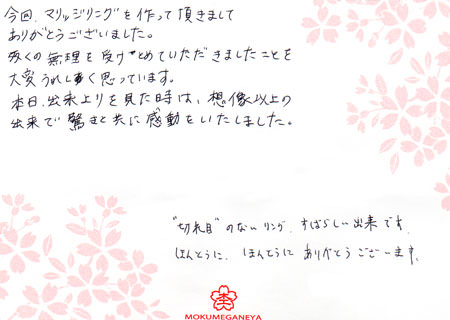 今回、マリッジリングを作って頂きまして
ありがとうございました。
多くの無理を受けとめていただきましたことを
大変うれしく思っています。
本日、出来上りを見た時は、想像以上の
出来で驚きと共に感動をいたしました。
"切れ目"のないリング、すばらしい出来です。
ほんとうに、ほんとうにありがとうございます。
MOKUMEGANEYA